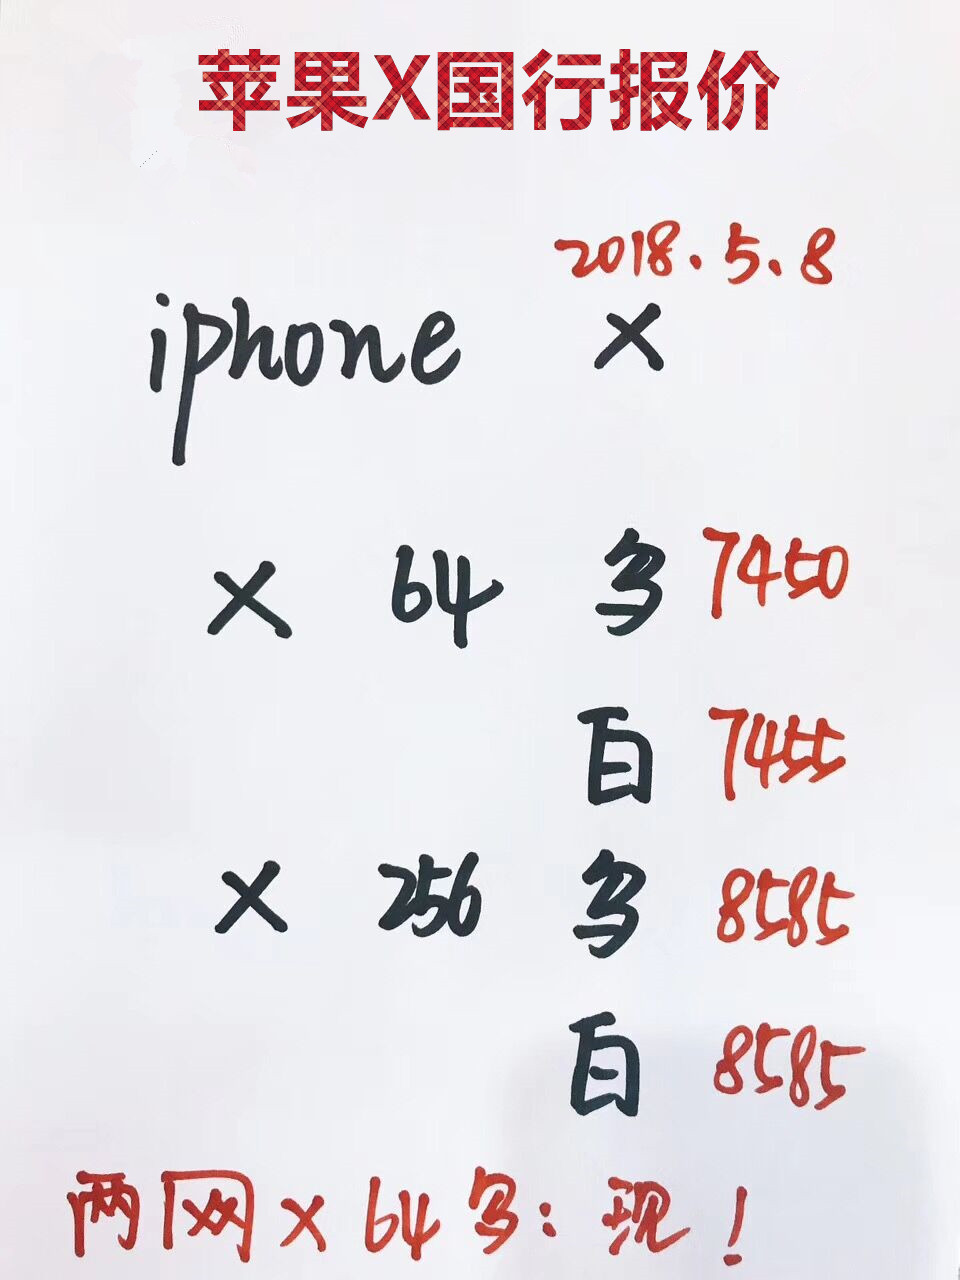 苹果X国行报价
2018.5.8
iphone X
X 64 乌 7450
白 7455
X 256 乌 8585
白 8585
两网X 64乌:现!